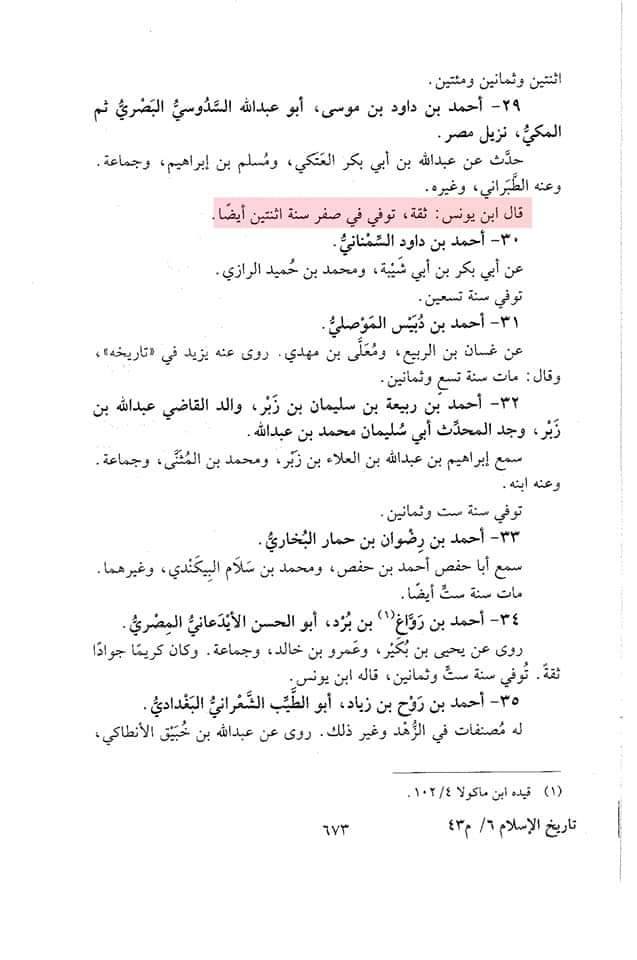 اثنتين وثمانين ومئتين.
٢٩- أحمد بن داود بن موسى، أبو عبدالله السَّدُوسيُّ البَصْريُّ ثم
المكيُّ، نزيل مصر.
حدَّث عن عبدالله بن أبي بكر العَتَكي، ومُسلم بن إبراهيم، وجماعة.
وعنه الطَّبَراني، وغيره.
قال ابن يونس: ثقة، توفي في صفر سنة اثنتين أيضًا.
٣٠- أحمد بن داود السِّمْنانيُّ.
عن أبي بكر بن أبي شَيْبة، ومحمد بن حُميد الرازي.
توفي سنة تسعين.
٣١- أحمد بن دُبَيْس المَوْصليُّ.
عن غسان بن الربيع، ومُعَلَّى بن مهدي. روى عنه يزيد في «تاريخه»،
وقال: مات سنة تسعٍ وثمانين.
٣٢- أحمد بن ربيعة بن سليمان بن زَبْر، والد القاضي عبدالله بن
زَبْر، وجد المحدِّث أبي سُليمان محمد بن عبدالله.
سمع إبراهيم بن عبدالله بن العلاء بن زَبْر، ومحمد بن المُثَنَّى، وجماعة.
وعنه ابنه.
توفي سنة ست وثمانين.
٣٣- أحمد بن رِضْوان بن حمار البُخاريُّ.
سمع أبا حفص أحمد بن حفص، ومحمد بن سَلَام البِيكَنْدي، وغيرهما.
مات سنة ستٍّ أيضًا.
٣٤- أحمد بن رَوَّاغ(١) بن بُرْد، أبو الحسن الأَيْدَعانيُّ المِصْريُّ.
روى عن يحيى بن بُكَيْر، وعَمرو بن خالد، وجماعة. وكان كريمًا جوادًا
ثقةً. تُوفي سنة ستٍّ وثمانين، قاله ابن يونس.
٣٥- أحمد بن رَوْح بن زياد، أبو الطَّيِّب الشَّعْرانيُّ البَغْداديُّ.
له مُصنفات في الزُّهْد وغير ذلك. روى عن عبدالله بن خُبَيْق الأنطاكي،
(١) قيده ابن ماكولا ٤/ ١٠٢.
تاريخ الإسلام ٦/ م٤٣
٦٧٣